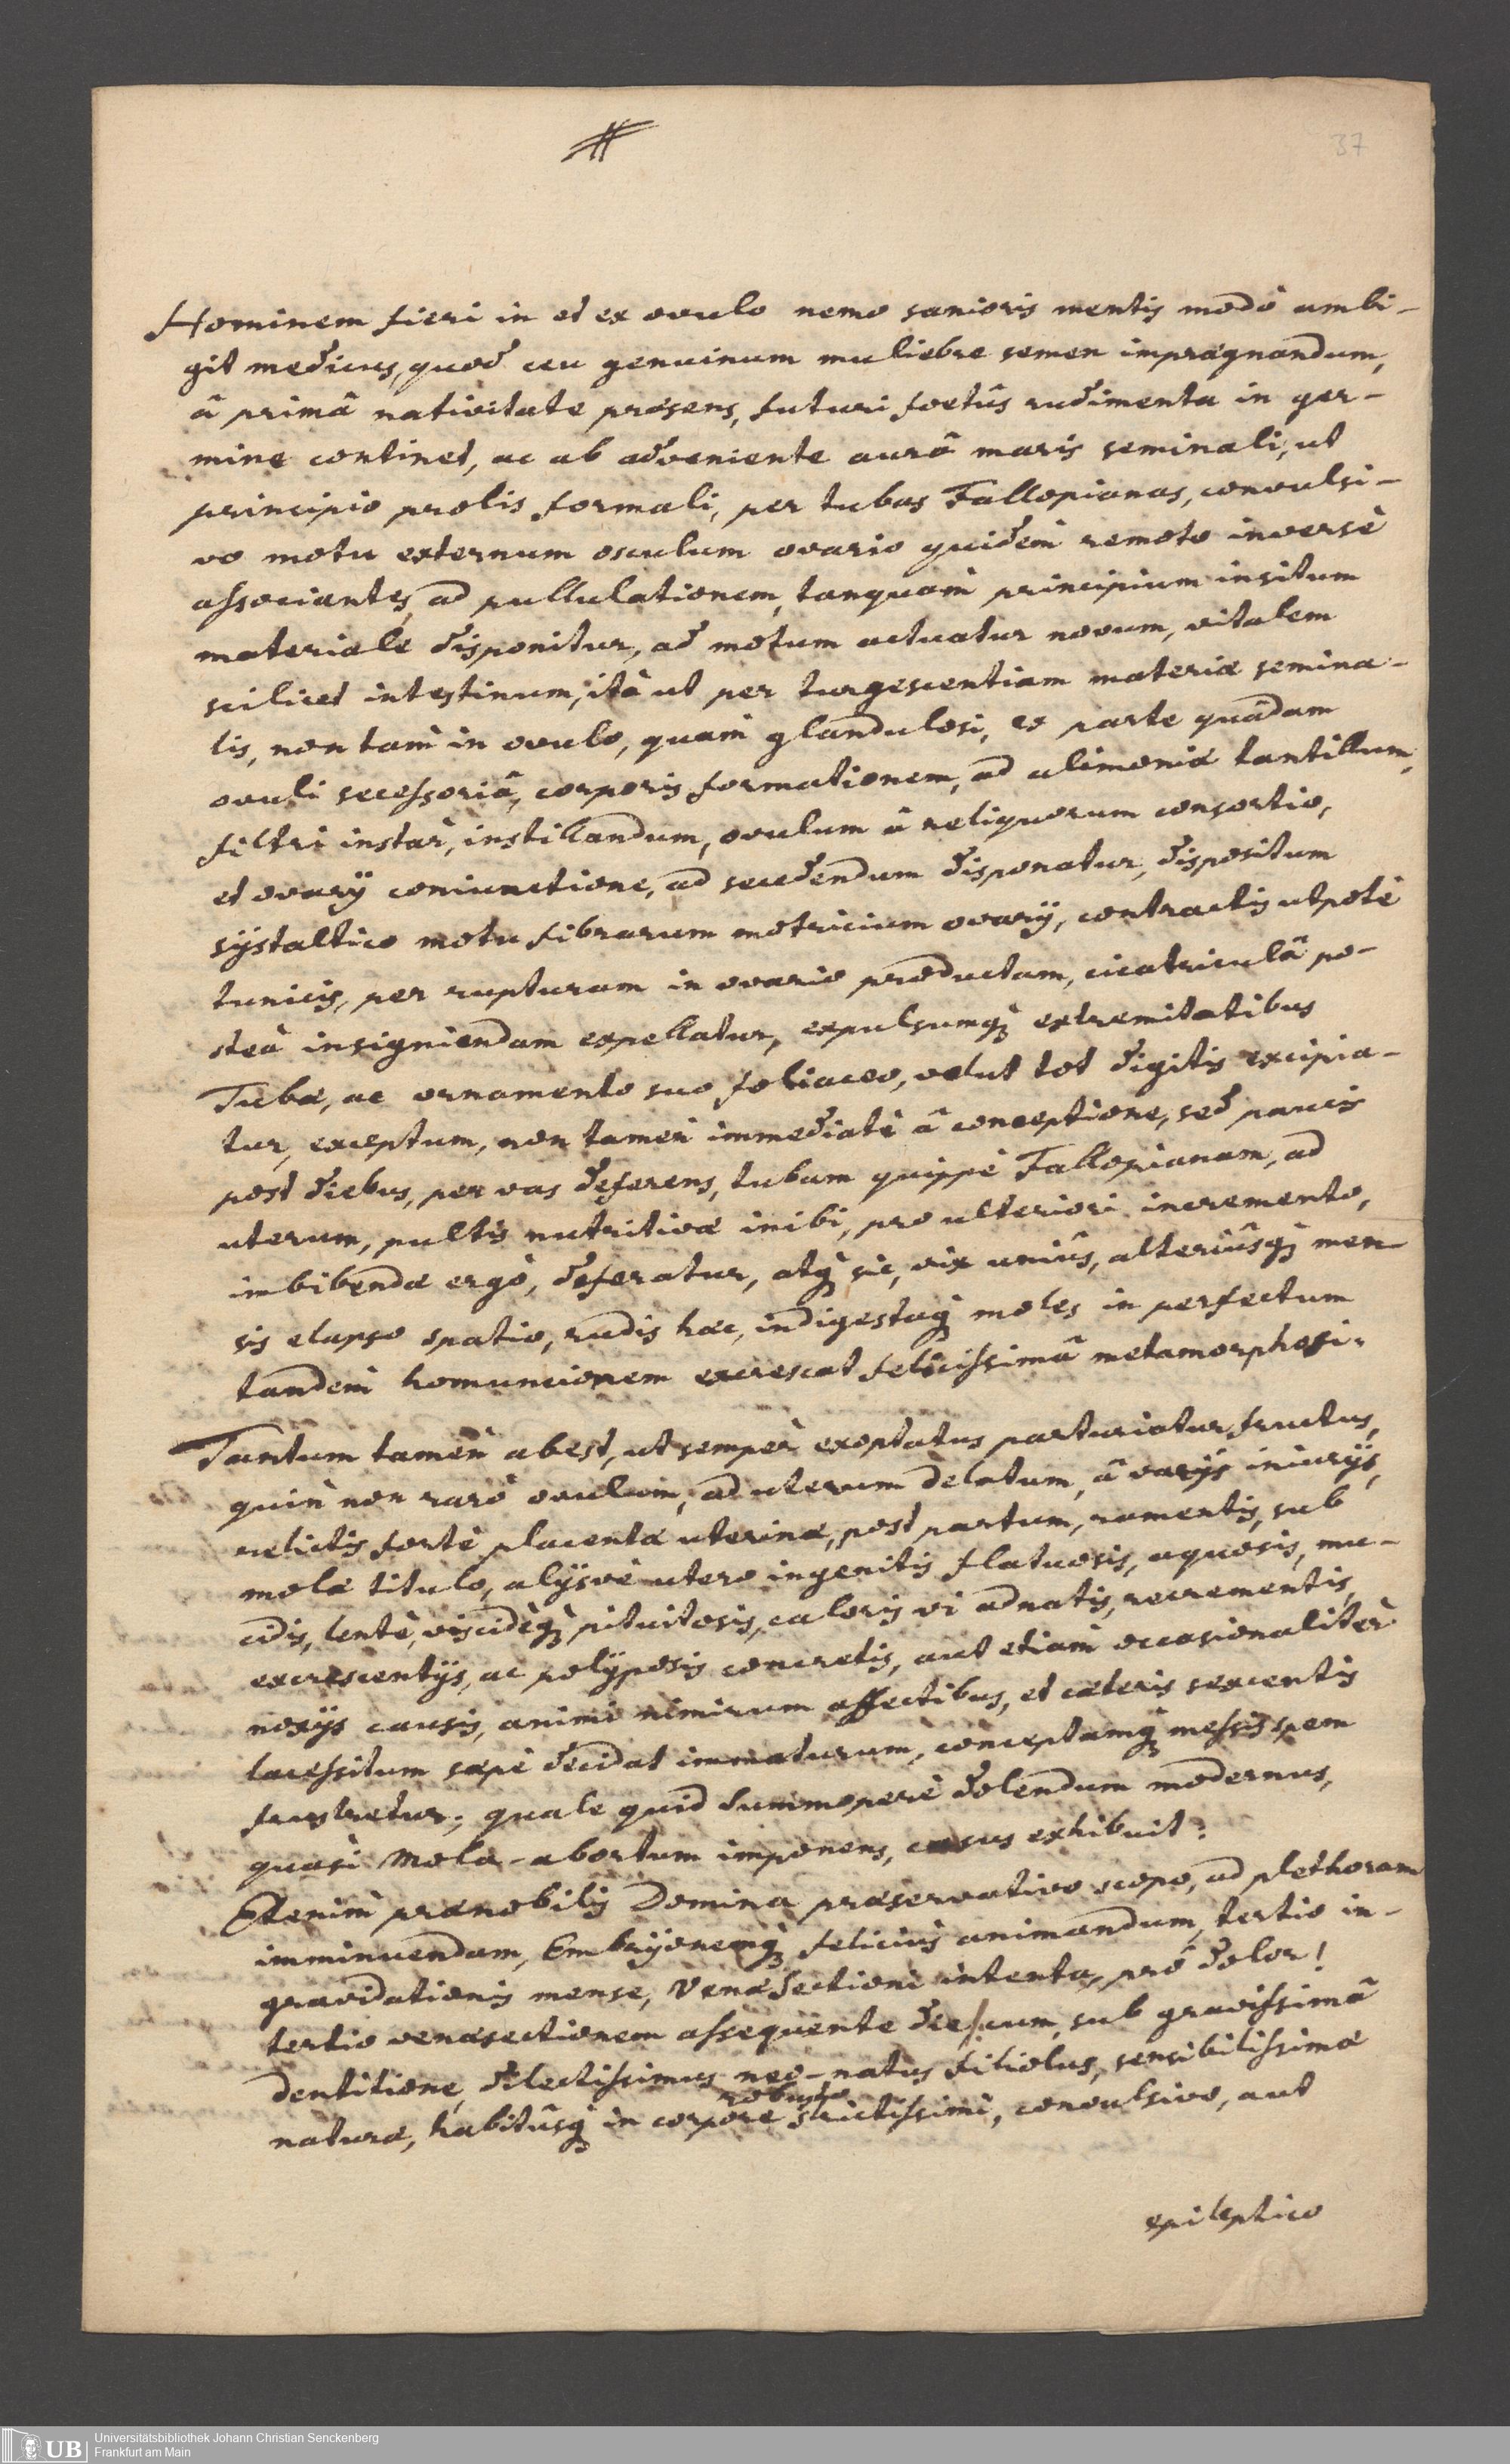 #
37
Hominem fieri in et ex ovulo nemo sanioris mentis modò ambi-
git medicus, quod ceu genuinum muliebre semen imprægnandum,
â primâ nativitate præsens, futuri foetûs rudimenta in ger-
mine continet, ac ab adveniente aurâ maris seminali, ut
principio prolis formali, per tubas Fallopianas, convulsi-
vo motu externum osculum ovario quidèm remoto inversè
associantes, ad pullulationem, tanquàm principium insitum
materiale disponitur, ad motum actuatur novum, vitalem
scilicet intestinum, ità ut per turgescentiam materiæ semina-
lis, non tam in ovulo, quàm glandulosi, ex parte quâdam
ovuli secessoriâ, corporis formationem, ad alimoniæ tantillum,
filtri instàr, instillandum, ovulum â reliquorum consortio,
et ovarij coniunctione, ad secedendum disponatur, dispositum
systaltico motu fibrarum motricium ovarij, contractis utpotè
tunicis, per rupturam in ovario productam, cicatriculâ po-
steà insigniendam expellatur, expulsumq; extremitatibus
Tubæ, ac ornamento suo foliaceo, velut tot digitis excipia-
tur, exceptum, non tamèn immediatè â conceptione, sed paucis
post diebus, per vas deferens, tubam quippè Fallopianam, ad
uterum, pultis nutritivæ inibi, pro ulteriori incremento,
imbibendæ ergò, deferatur, atq; sic, vix uniûs, alteriûsq; men-
sis elapso spatio, rudis hæc, indigestaq; moles in perfectum
tandèm homuncionem excrescat felicissimâ metamorphosi.
Tantum tamèn abest, ut sempèr exoptatus parturiatur fructus,
quin non rarò ovulum, ad uterum delatum, â varijs iniurijs,
relictis fortè placentæ uterinæ, post partum, ramentis, sub
molæ titulo, alijsvè utero ingenitis flatuosis, aquosis, mu-
cidis, lentè, viscidèq; pituitosis, caloris vi adnatis, recrementis,
excrescentijs, ac polyposis concretis, aut etiàm occasionalitèr
noxijs causis, animi nimirum affectibus, et cæteris sexcentis
lacessitum sæpè decidat immaturum, conceptamq; messis spem
frustretur; quale quid summoperè dolendum modernus,
quasi Mola-abortum imponens, casus exhibuit:
Etenim prænobilis Domina præservativo scopo, ad plethoram
imminuendam, Embryonemq; feliciùs animandum, tertio in-
gravidationis mense, Venæsectioni intenta, prô dolor!
tertio venæsectionem assequente die, cum sub gravissimâ
dentitione, dilectissimus neo-natus filiolus, sensibilissimæ
naturæ, habitûsq; in corpore robusto strictissimi, convulsivo, aut
epileptico
Universitätsbibliothek Johann Christian Senckenberg
Frankfurt am Main
UB